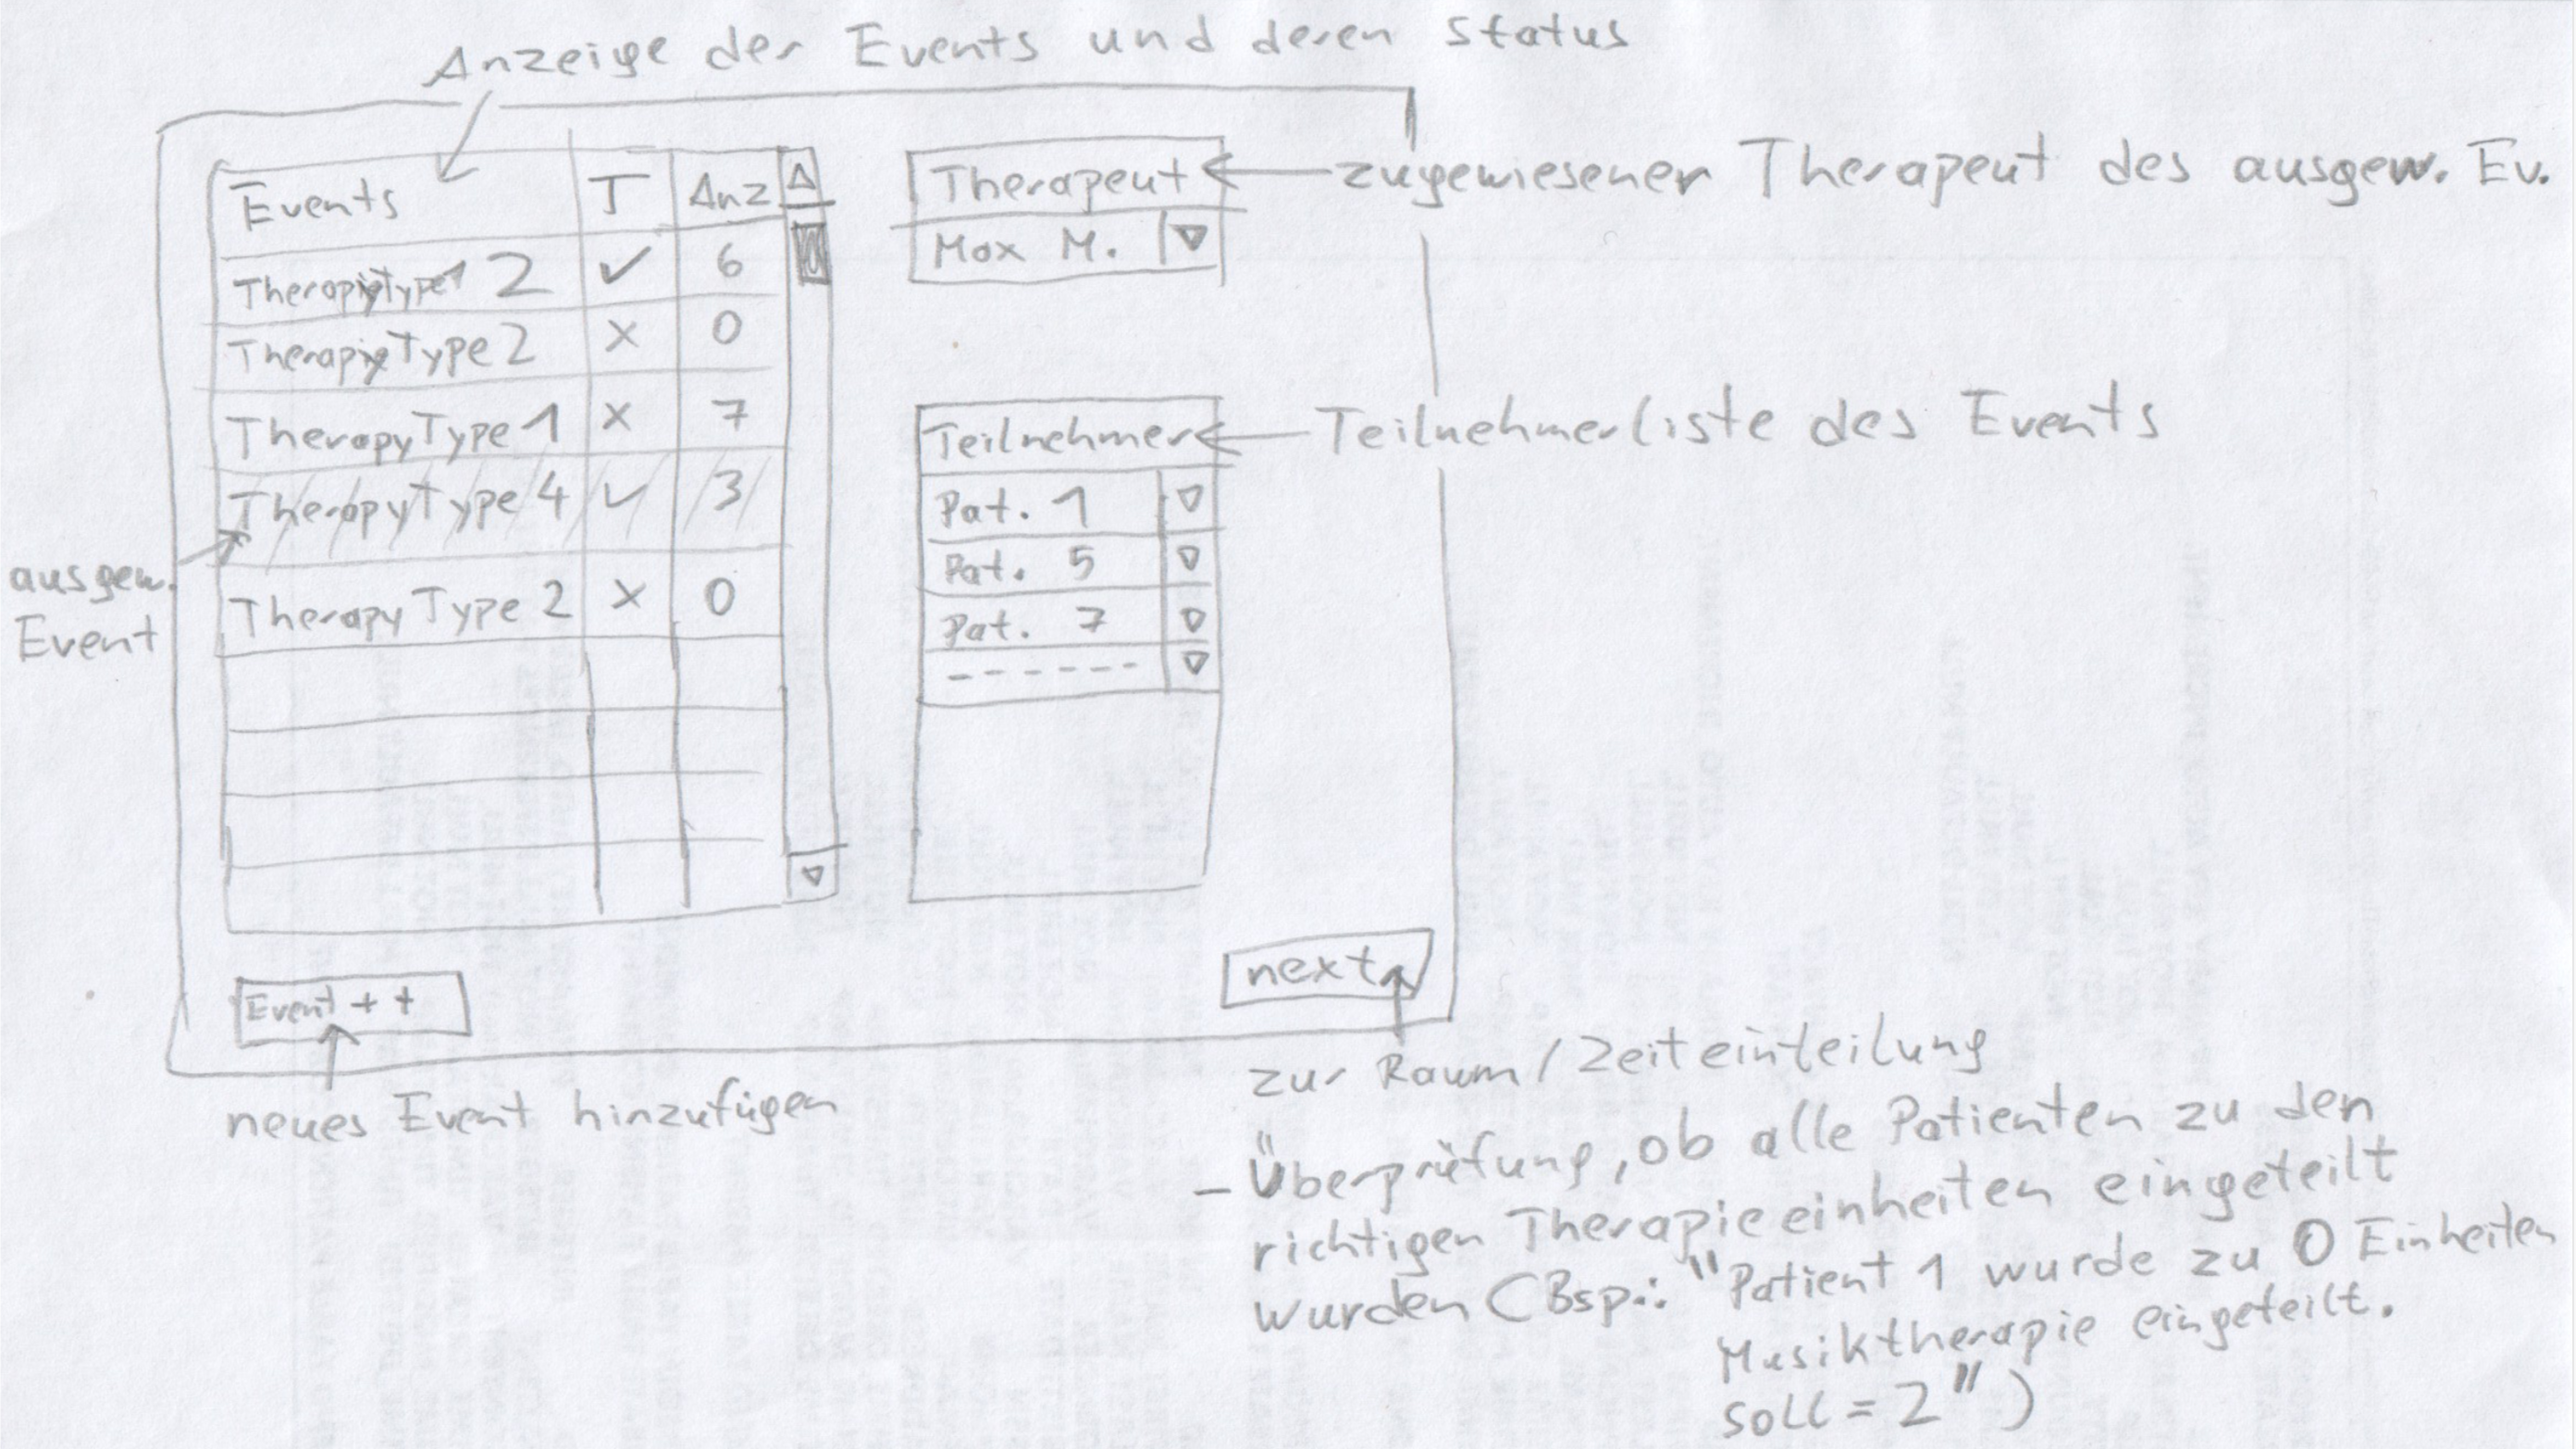 Anzeige der Events und deren Status
Events T Anz
TherapyType1 2 ✓ 6
TherapyType 2 x 0
TherapyType 1 x 7
TherapyType 4 ✓ 3
TherapyType 2 x 0
ausgew.
Event
Event ++
neues Event hinzufügen
Therapeut
Max M.
zugewiesener Therapeut des ausgew. Ev.
Teilnehmer
Pat. 1
Pat. 5
Pat. 7
------
Teilnehmerliste des Events
next
zur Raum/Zeiteinteilung
- Überprüfung, ob alle Patienten zu den
richtigen Therapieeinheiten eingeteilt
wurden (Bsp.: "Patient 1 wurde zu 0 Einheiten
Musiktherapie eingeteilt.
soll = 2")